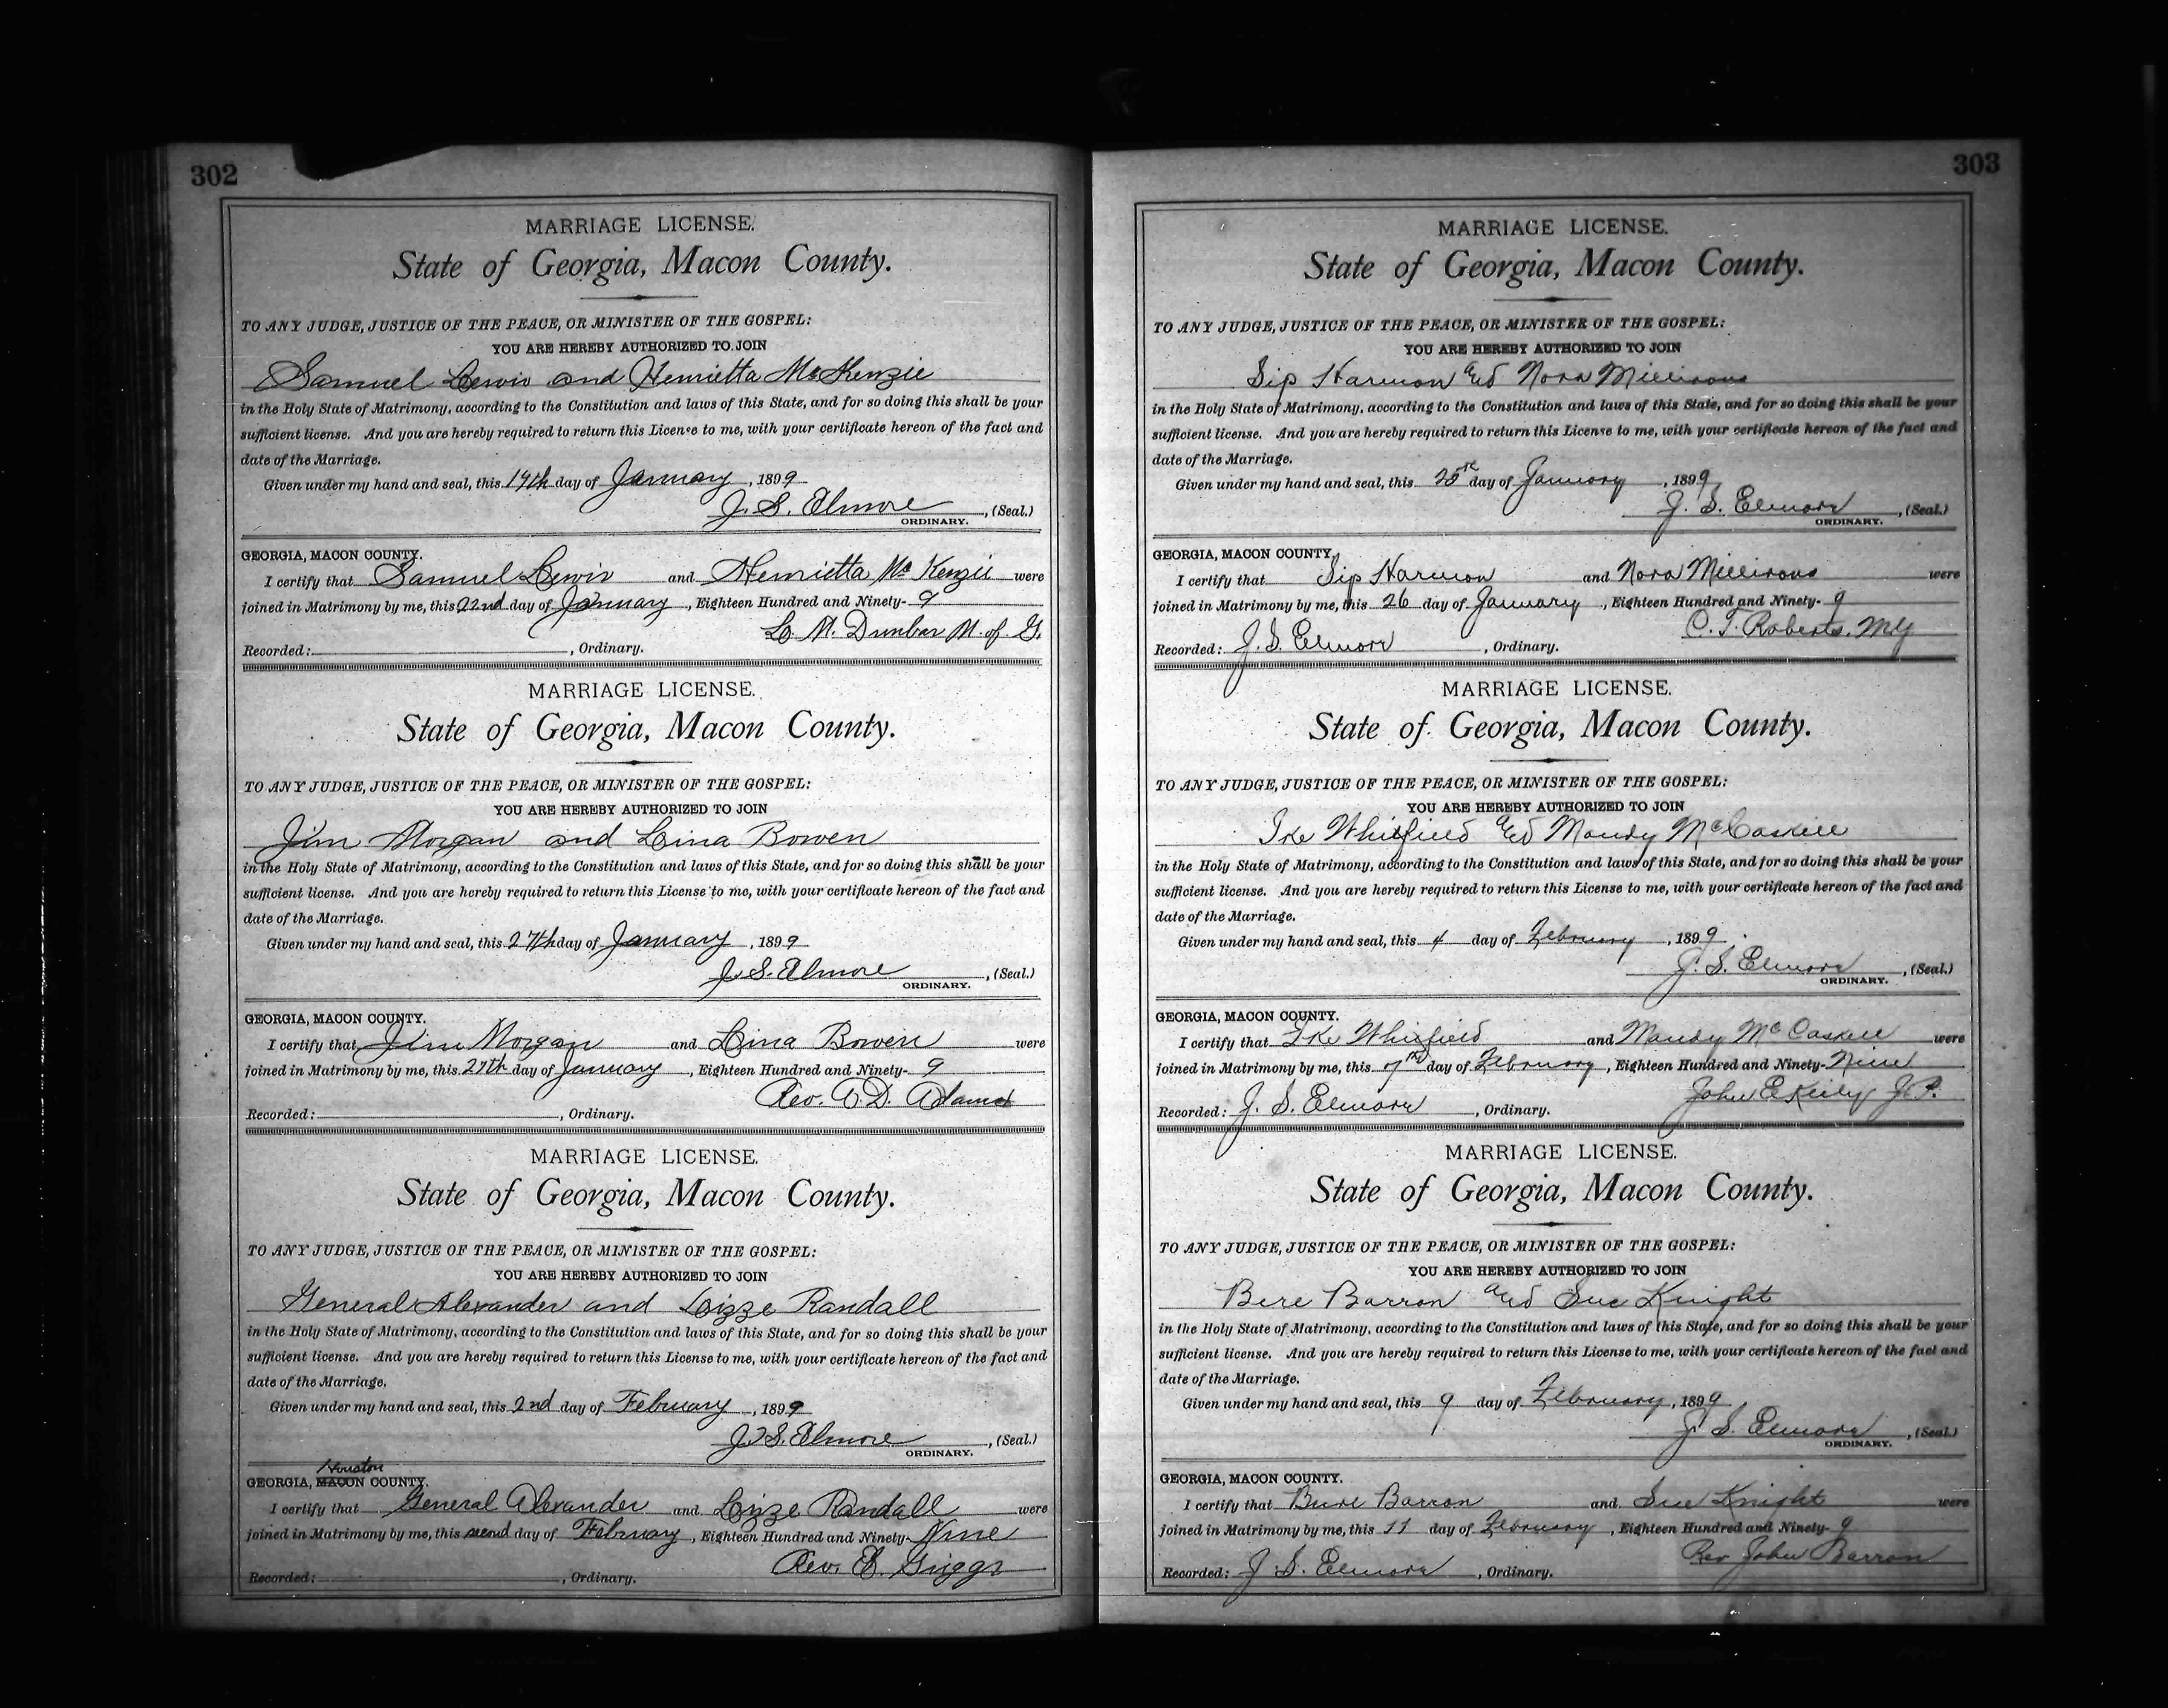 302
MARRIAGE LICENSE.
State of Georgia, Macon County.
TO ANY JUDGE, JUSTICE OF THE PEACE, OR MINISTER OF THE GOSPEL:
YOU ARE HEREBY AUTHORIZED TO JOIN
Samuel Lewis and Henrietta McKenzie
in the Holy State of Matrimony, according to the Constitution and laws of this State, and for so doing this shall be your
sufficient license. And you are hereby required to return this License to me, with your certificate hereon of the fact and
date of the Marriage.
Given under my hand and seal, this 19th day of January, 1899
J. S. Elmore, (Seal.)
ORDINARY.
GEORGIA, MACON COUNTY.
I certify that Samuel Lewis and Henrietta McKenzie were
joined in Matrimony by me, this 22nd day of January, Eighteen Hundred and Ninety-9
L. M. Dunbar M. of G.
Recorded: , Ordinary.
MARRIAGE LICENSE.
State of Georgia, Macon County.
TO ANY JUDGE, JUSTICE OF THE PEACE, OR MINISTER OF THE GOSPEL:
YOU ARE HEREBY AUTHORIZED TO JOIN
Jim Morgan and Lina Bowen
in the Holy State of Matrimony, according to the Constitution and laws of this State, and for so doing this shall be your
sufficient license. And you are hereby required to return this License to me, with your certificate hereon of the fact and
date of the Marriage.
Given under my hand and seal, this 27th day of January, 1899
J. S. Elmore, (Seal.)
ORDINARY.
GEORGIA, MACON COUNTY.
I certify that Jim Morgan and Lina Bowen were
joined in Matrimony by me, this 27th day of January, Eighteen Hundred and Ninety-9
Rev. D. Adams
Recorded: , Ordinary.
MARRIAGE LICENSE.
State of Georgia, Macon County.
TO ANY JUDGE, JUSTICE OF THE PEACE, OR MINISTER OF THE GOSPEL:
YOU ARE HEREBY AUTHORIZED TO JOIN
General Alexander and Lizze Randall
in the Holy State of Matrimony, according to the Constitution and laws of this State, and for so doing this shall be your
sufficient license. And you are hereby required to return this License to me, with your certificate hereon of the fact and
date of the Marriage.
Given under my hand and seal, this 2nd day of February, 1899
J. S. Elmore, (Seal.)
ORDINARY.
Houston
GEORGIA, MACON COUNTY.
I certify that General Alexander and Lizze Randall were
joined in Matrimony by me, this second day of February, Eighteen Hundred and Ninety-Nine
Rev. E. Griggs
Recorded: , Ordinary.
303
MARRIAGE LICENSE.
State of Georgia, Macon County.
TO ANY JUDGE, JUSTICE OF THE PEACE, OR MINISTER OF THE GOSPEL:
YOU ARE HEREBY AUTHORIZED TO JOIN
Sip Harmon and Nora Millirons
in the Holy State of Matrimony, according to the Constitution and laws of this State, and for so doing this shall be your
sufficient license. And you are hereby required to return this License to me, with your certificate hereon of the fact and
date of the Marriage.
Given under my hand and seal, this 25th day of January, 1899
J. S. Elmore, (Seal.)
ORDINARY.
GEORGIA, MACON COUNTY.
I certify that Sip Harmon and Nora Millirons were
joined in Matrimony by me, this 26 day of January, Eighteen Hundred and Ninety-9
C. T. Roberts, MG
Recorded: J. S. Elmore, Ordinary.
MARRIAGE LICENSE.
State of Georgia, Macon County.
TO ANY JUDGE, JUSTICE OF THE PEACE, OR MINISTER OF THE GOSPEL:
YOU ARE HEREBY AUTHORIZED TO JOIN
Ike Whitfield and Mandy McCaskill
in the Holy State of Matrimony, according to the Constitution and laws of this State, and for so doing this shall be your
sufficient license. And you are hereby required to return this License to me, with your certificate hereon of the fact and
date of the Marriage.
Given under my hand and seal, this 4 day of February, 1899
J. S. Elmore, (Seal.)
ORDINARY.
GEORGIA, MACON COUNTY.
I certify that Ike Whitfield and Mandy McCaskill were
joined in Matrimony by me, this 7th day of February, Eighteen Hundred and Ninety-Nine
John E Keily J.P.
Recorded: J. S. Elmore, Ordinary.
MARRIAGE LICENSE.
State of Georgia, Macon County.
TO ANY JUDGE, JUSTICE OF THE PEACE, OR MINISTER OF THE GOSPEL:
YOU ARE HEREBY AUTHORIZED TO JOIN
Bere Barron and Sue Knight
in the Holy State of Matrimony, according to the Constitution and laws of this State, and for so doing this shall be your
sufficient license. And you are hereby required to return this License to me, with your certificate hereon of the fact and
date of the Marriage.
Given under my hand and seal, this 9 day of February, 1899
J. S. Elmore, (Seal.)
ORDINARY.
GEORGIA, MACON COUNTY.
I certify that Bure Barron and Sue Knight were
joined in Matrimony by me, this 11 day of February, Eighteen Hundred and Ninety-9
Rev John Barron
Recorded: J. S. Elmore, Ordinary.